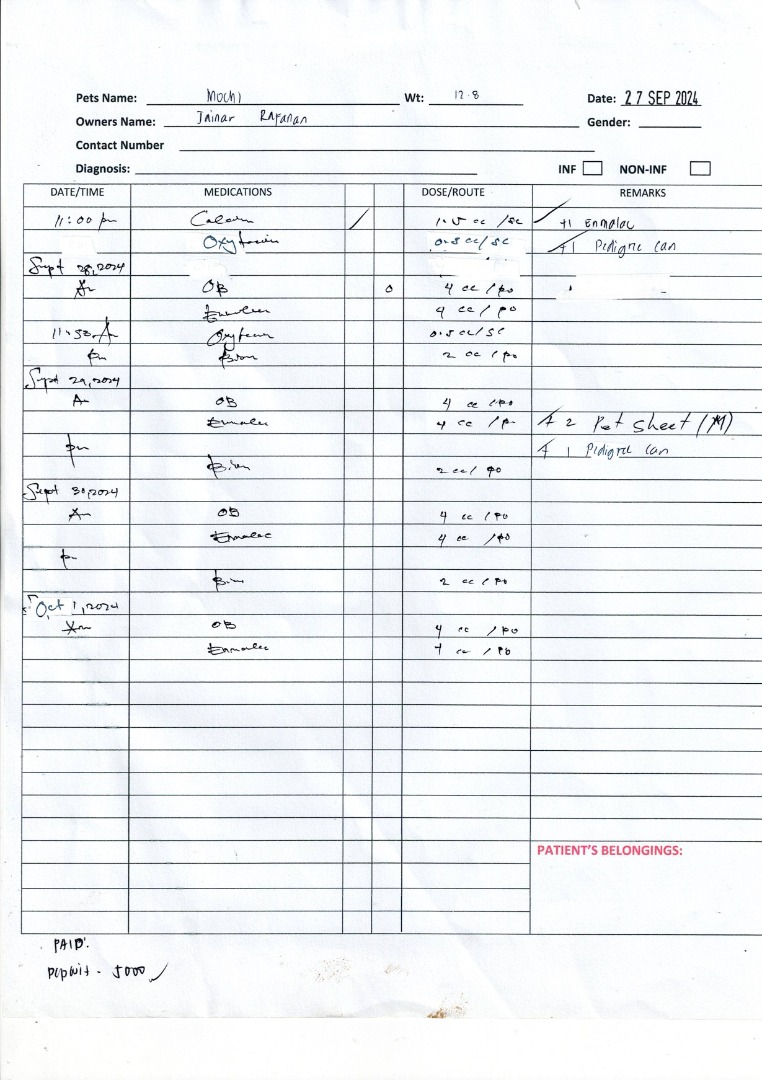 Pets Name: Mochi Wt: 12.8 Date: 27 SEP 2024
Owners Name: Jainar Rafanan Gender:
Contact Number
Diagnosis: INF NON-INF
DATE/TIME MEDICATIONS DOSE/ROUTE REMARKS
11:00 pm 1.5 cc /sc +1 Enmalac
Oxytocin 0.5 cc/sc +1 Pedigree can
Sept 28,2024
Am OB 0 4 cc /po
4 cc /po
11:30 Am Oxytocin 0.5 cc/sc
pm 2 cc /po
Sept 29,2024
Am OB 4 cc /po
Enmalac 4 cc /po + 2 Pet sheet (M)
pm + 1 Pedigree can
2 cc/ po
Sept 30,2024
Am OB 4 cc /po
Enmalac 4 cc /po
pm
2 cc /po
Oct 1,2024
Am OB 4 cc /po
Enmalac 4 cc /po
PATIENT'S BELONGINGS:
PAID:
Deposit - 5000